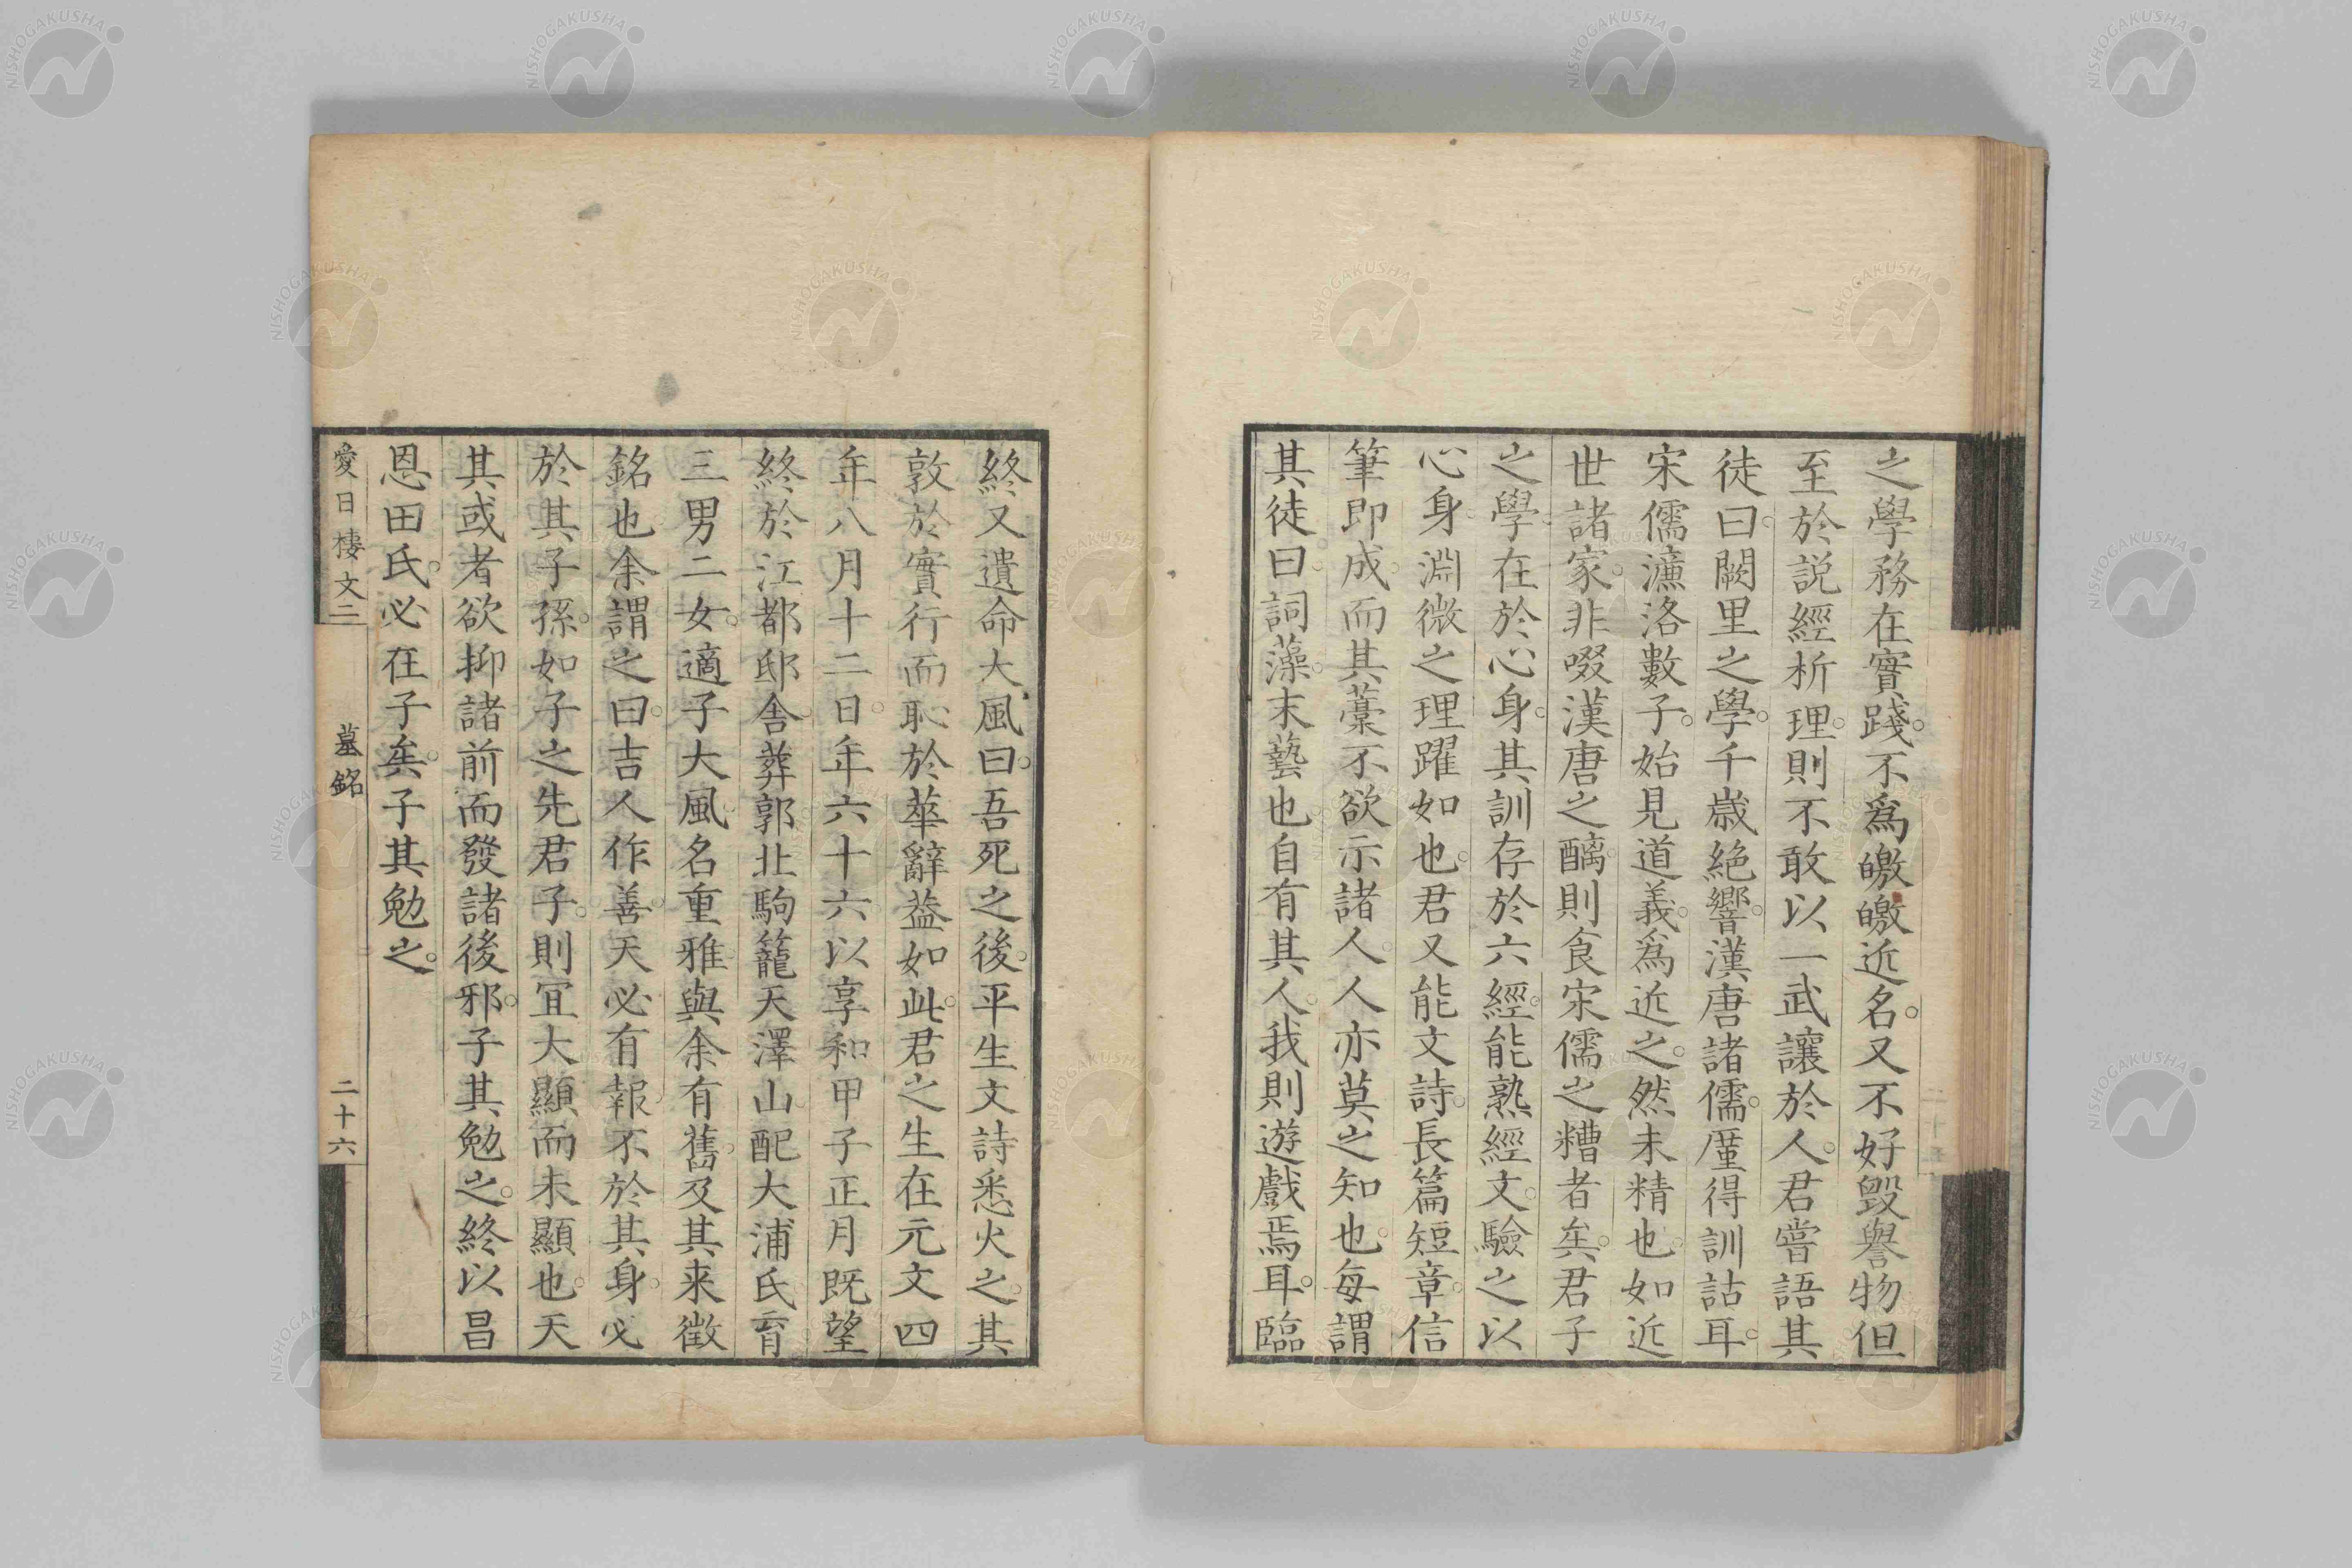 之學務在實踐。不爲皦皦近名。又不好毀譽物但
至於説經析理。則不敢以一武讓於人。君嘗語其
徒曰。闕里之學。千歲絶響。漢唐諸儒。厪得訓詁耳。
宋儒濂洛數子。始見道義。爲近之。然未精也。如近
世諸家。非啜漢唐之醨。則食宋儒之糟者矣。君子
之學。在於心身。其訓存於六經。能熟經文。驗之以
心身。淵微之理躍如也。君又能文詩。長篇短章。信
筆即成。而其藁不欲示諸人。人亦莫之知也。每謂
其徒。曰。詞藻。末藝也。自有其人。我則遊戲焉耳。臨
終又遺命大風曰。吾死之後。平生文詩悉火之。其
敦於實行而恥於華辭。葢如此。君之生在元文四
年八月十二日。年六十六。以享和甲子正月既望
終於江都邸舍。葬郭北駒籠天澤山。配大浦氏。育
三男二女。適子大風。名重雅。與余有舊。及其来徵
銘也。余謂之曰。吉人作善。天必有報。不於其身。必
於其子孫。如子之先君子。則宜大顯而未顯也。天
其或者欲抑諸前而發諸後邪。子其勉之。終以昌
恩田氏。必在子矣。子其勉之。
愛日樓文二
墓銘
二十六
NISHOGAKUSHA